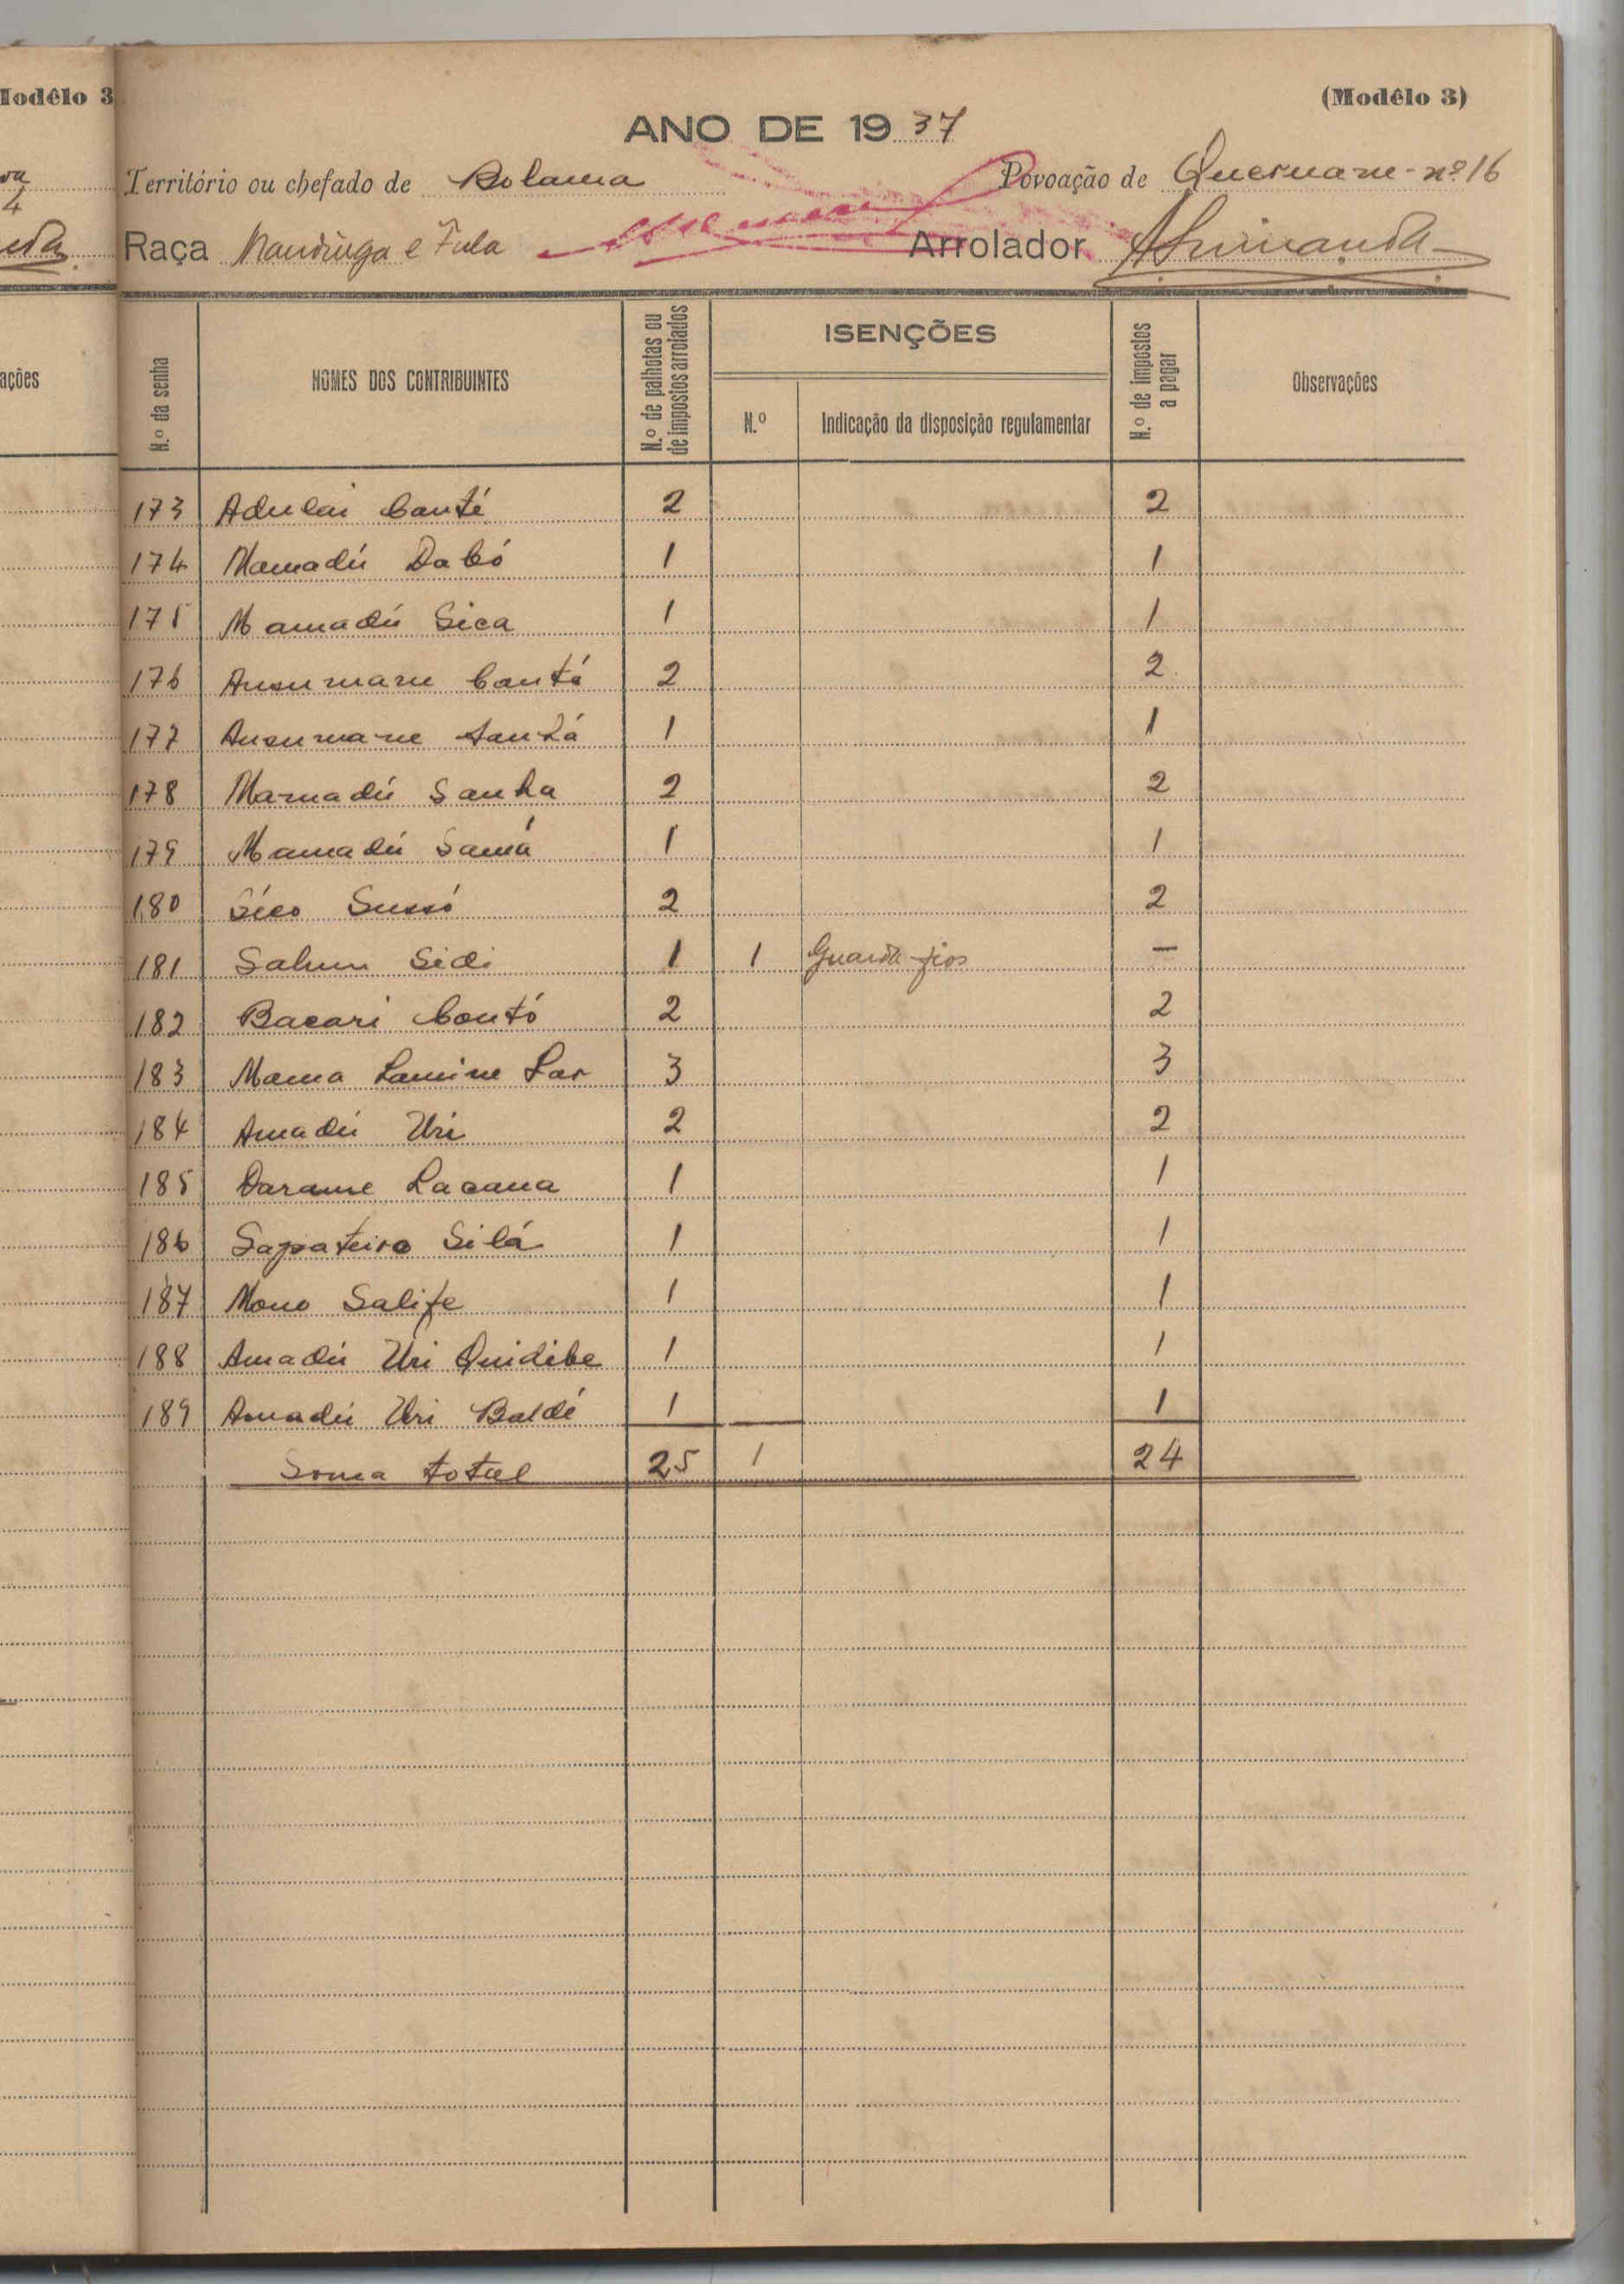 Modêlo 3
(Modêlo 3)
ANO DE 1937
Território ou chefado de Bolama
Povoação de Quernane - nº 16
Raça Mandinga e Fula
Arrolador
ações
N.º da senha
NOMES DOS CONTRIBUINTES
N.º de palhotas ou de impostos arrolados
ISENÇÕES
N.º
Indicação da disposição regulamentar
N.º de impostos a pagar
Observações
173 Adulai Canté 2 2
174 Mamadú Dabó 1 1
175 Mamadú Sica 1 1
176 Ansumane Cantó 2 2
177 Ansumane Sanhá 1 1
178 Mamadú Sanha 2 2
179 Mamadú Samá 1 1
180 Sico Sussó 2 2
181 Salum Sidi 1 1 Guarda-fios —
182 Bacari Contó 2 2
183 Mama Lamine Sar 3 3
184 Amadú Uri 2 2
185 Darame Lacana 1 1
186 Sapateiro Silá 1 1
187 Mono Salife 1 1
188 Amadú Uri Quidibe 1 1
189 Amadú Uri Baldé 1 1
Soma total 25 1 24